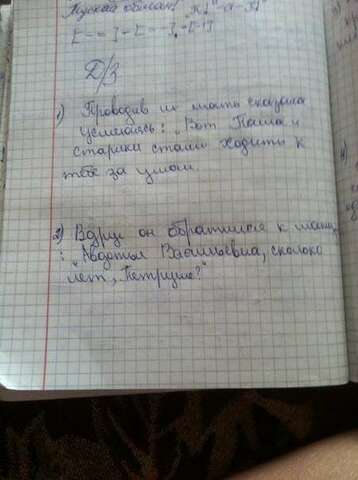 Д/З
1) Проводив их мать сказала
усмехаясь: „Вот Паша и
старики стали ходить к
тебе за умом.
2) Вдруг он обратился к
: „Авдотья Васильевна, сколько
лет, Петруше?"